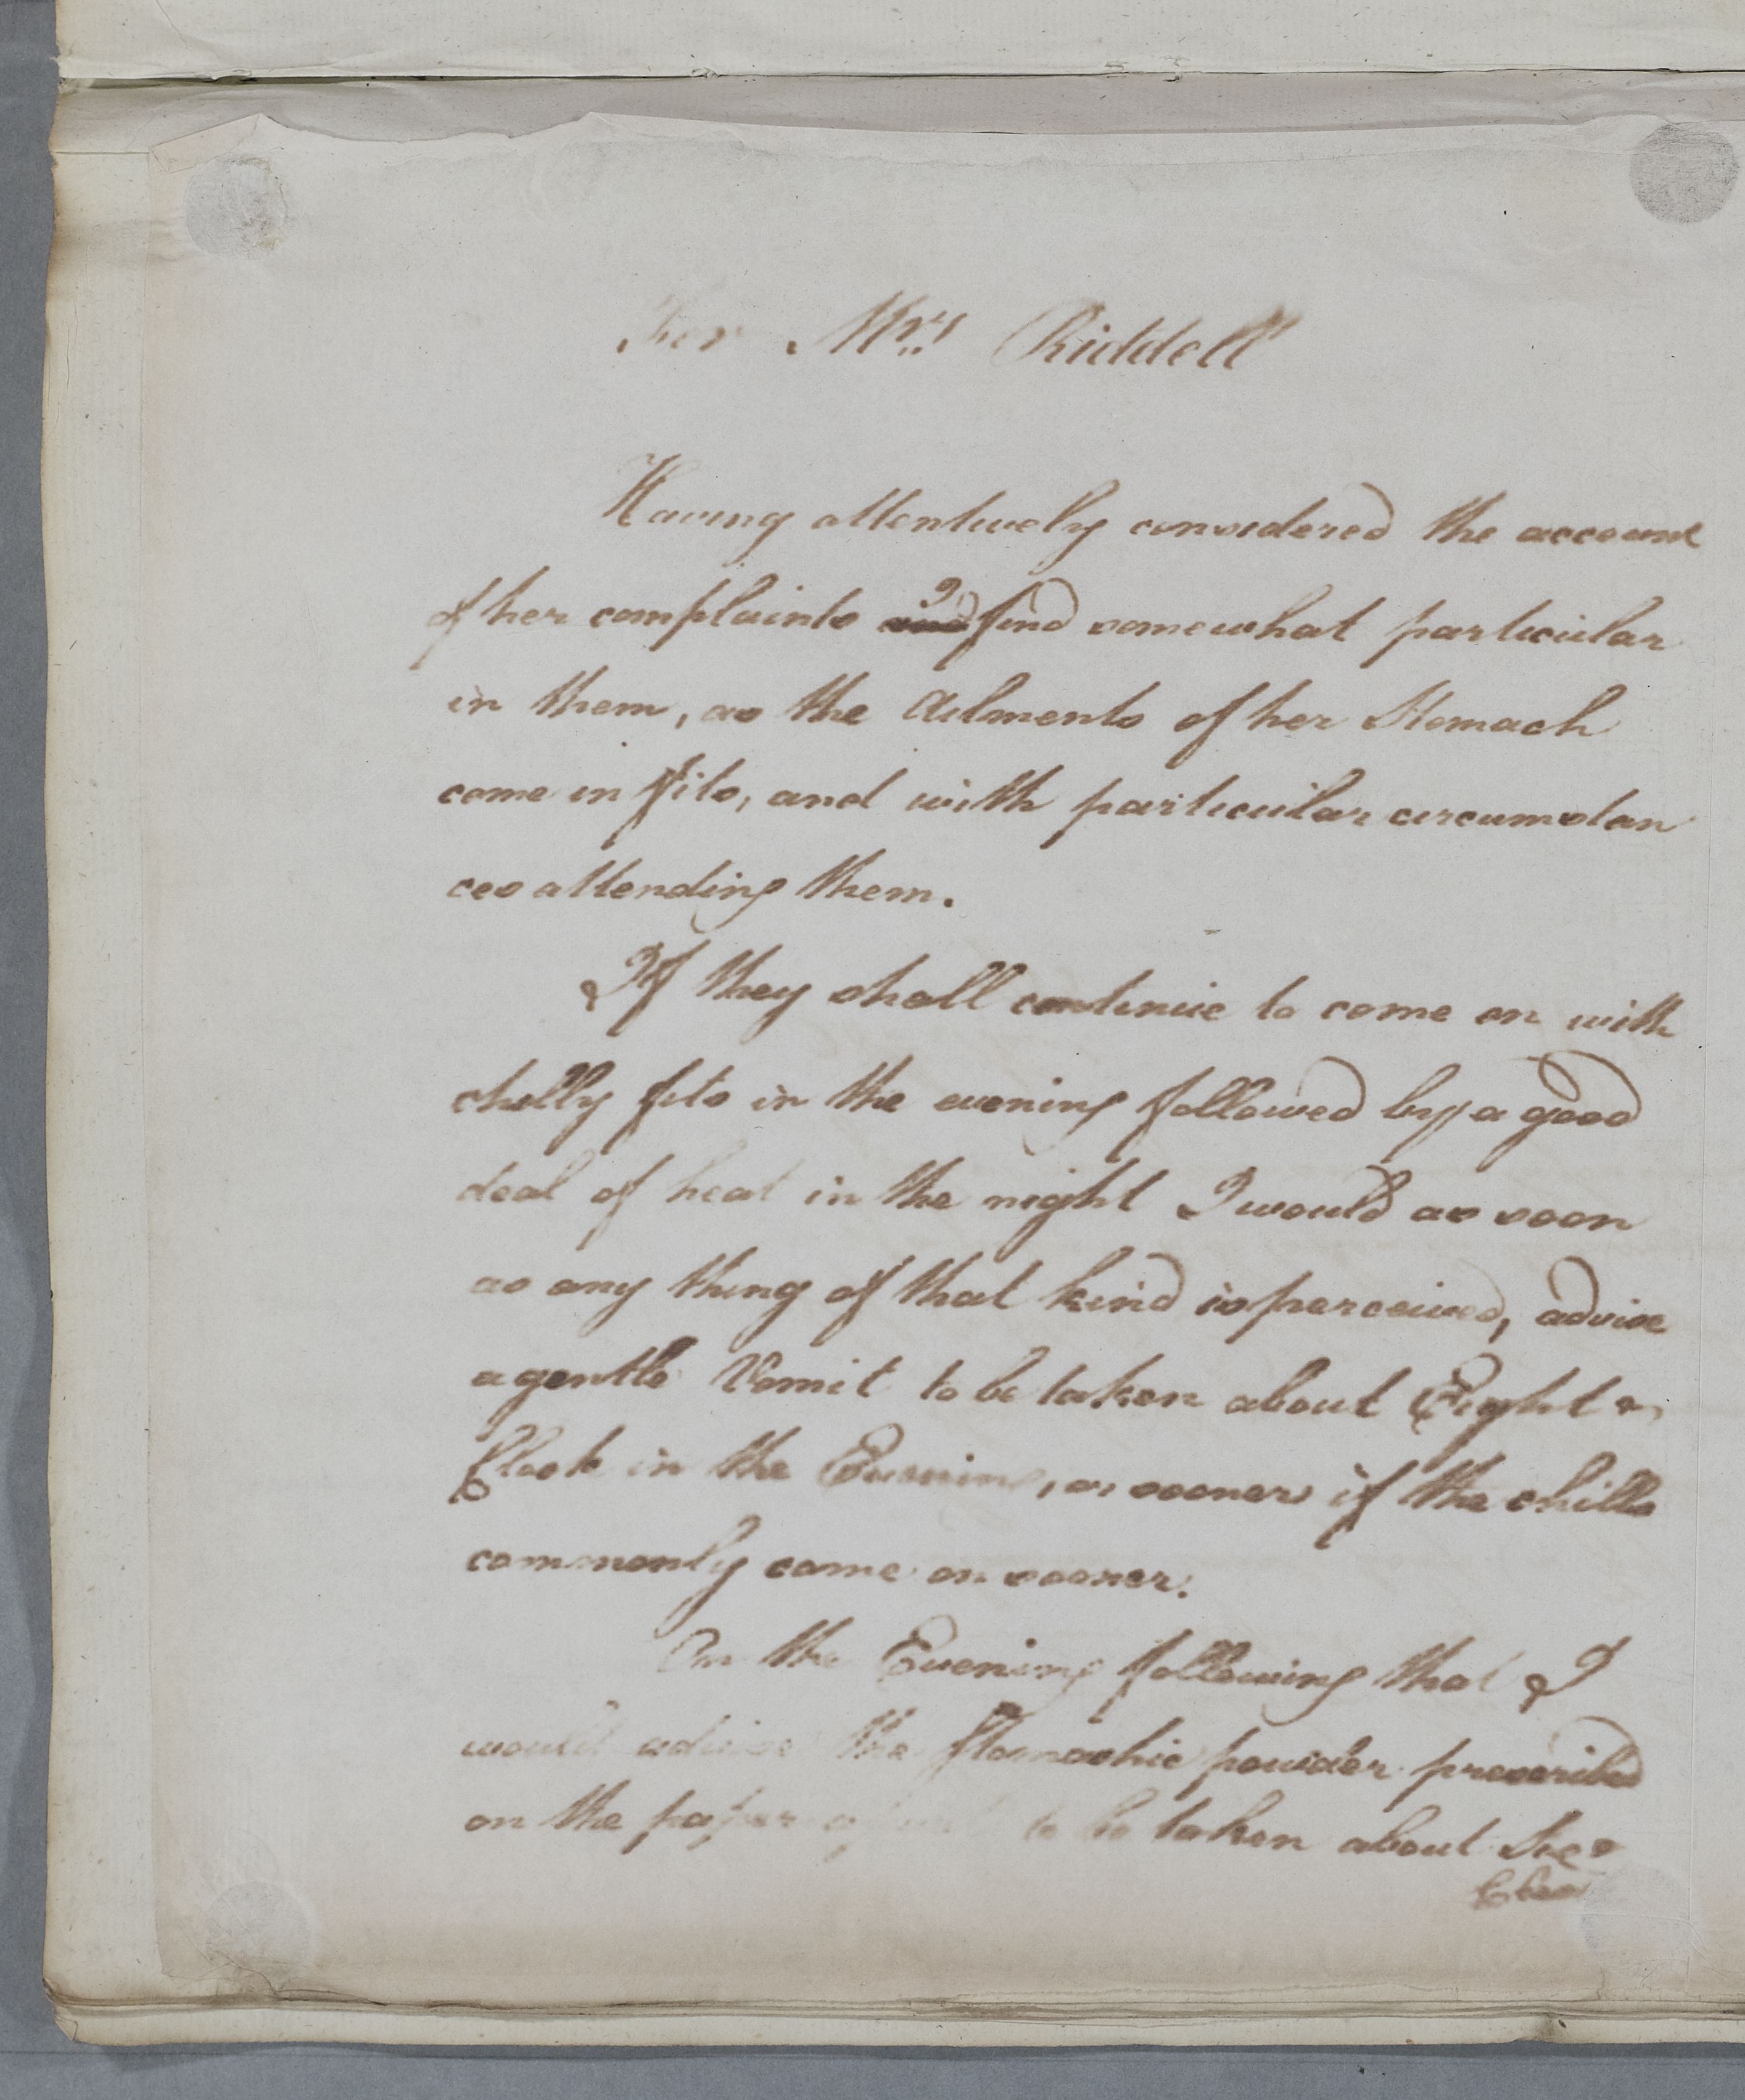 For Mrs. Riddell
Having attentively considered the account
of her complaints I find somewhat particular
in them, as the Ailments of her Stomach
come in fits, and with particular circumstan
ces attending them.
If they shall continue to come on with
chilly fits in the evening followed by a good
deal of heat in the night I would as soon
as any thing of that kind is perceived, advise
a gentle Vomit to be taken about Eight o
Clock in the Evening, or sooner if the chills
commonly come on sooner.
On the Evening following that I
would advise the Stomachic powder prescribed
on the paper apart to be taken about Six o
Cloc